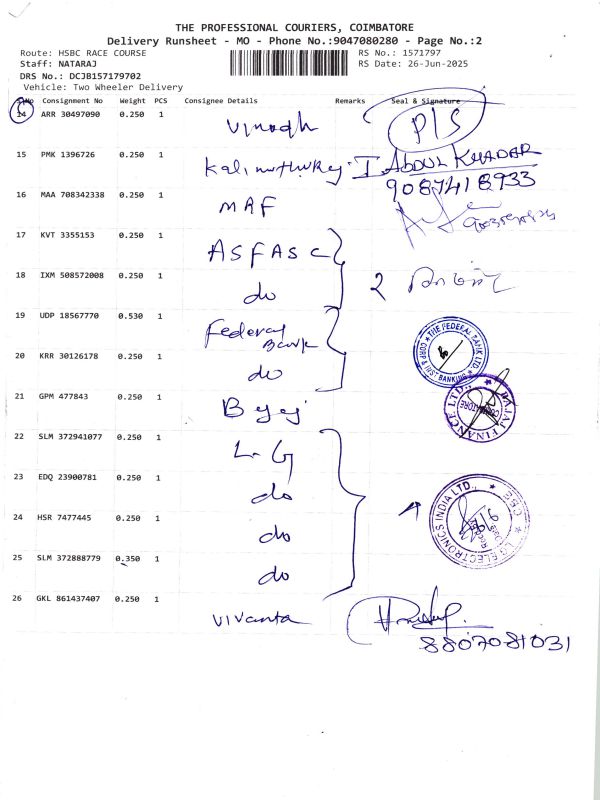 THE PROFESSIONAL COURIERS, COIMBATORE
Delivery Runsheet - MO - Phone No.:9047080280 - Page No.:2
Route: HSBC RACE COURSE RS No.: 1571797
Staff: NATARAJ RS Date: 26-Jun-2025
DRS No.: DCJB157179702
Vehicle: Two Wheeler Delivery
S.No Consignment No Weight PCS Consignee Details Remarks Seal & Signature
14 ARR 30497090 0.250 1 Vinodh P/S
15 PMK 1396726 0.250 1 I ABDUL KHADAR
9087418933
16 MAA 708342338 0.250 1 MAF
17 KVT 3355153 0.250 1 ASFASC
18 IXM 508572008 0.250 1 do 2
19 UDP 18567770 0.530 1 Federal Bank
THE FEDERAL BANK LTD. CORP & INST BANKING
20 KRR 30126178 0.250 1 do
21 GPM 477843 0.250 1 Bajaj
BAJAJ FINANCE LTD. COIMBATORE
22 SLM 372941077 0.250 1 L.G
23 EDQ 23900781 0.250 1 do
LG ELECTRONICS INDIA LTD., CBE
24 HSR 7477445 0.250 1 do
25 SLM 372888779 0.350 1 do
26 GKL 861437407 0.250 1 Vivanta
8807081031